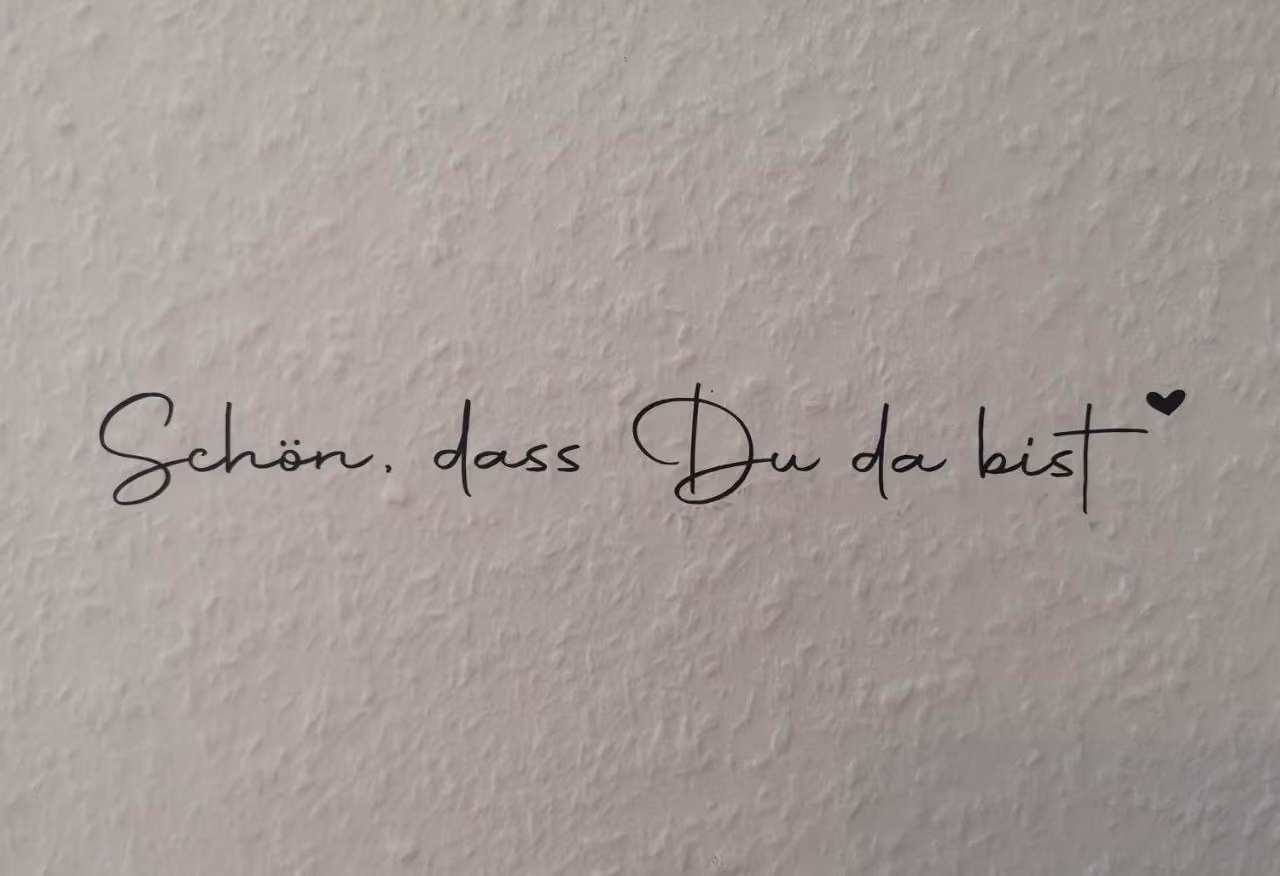 Schön, dass Du da bist ♥